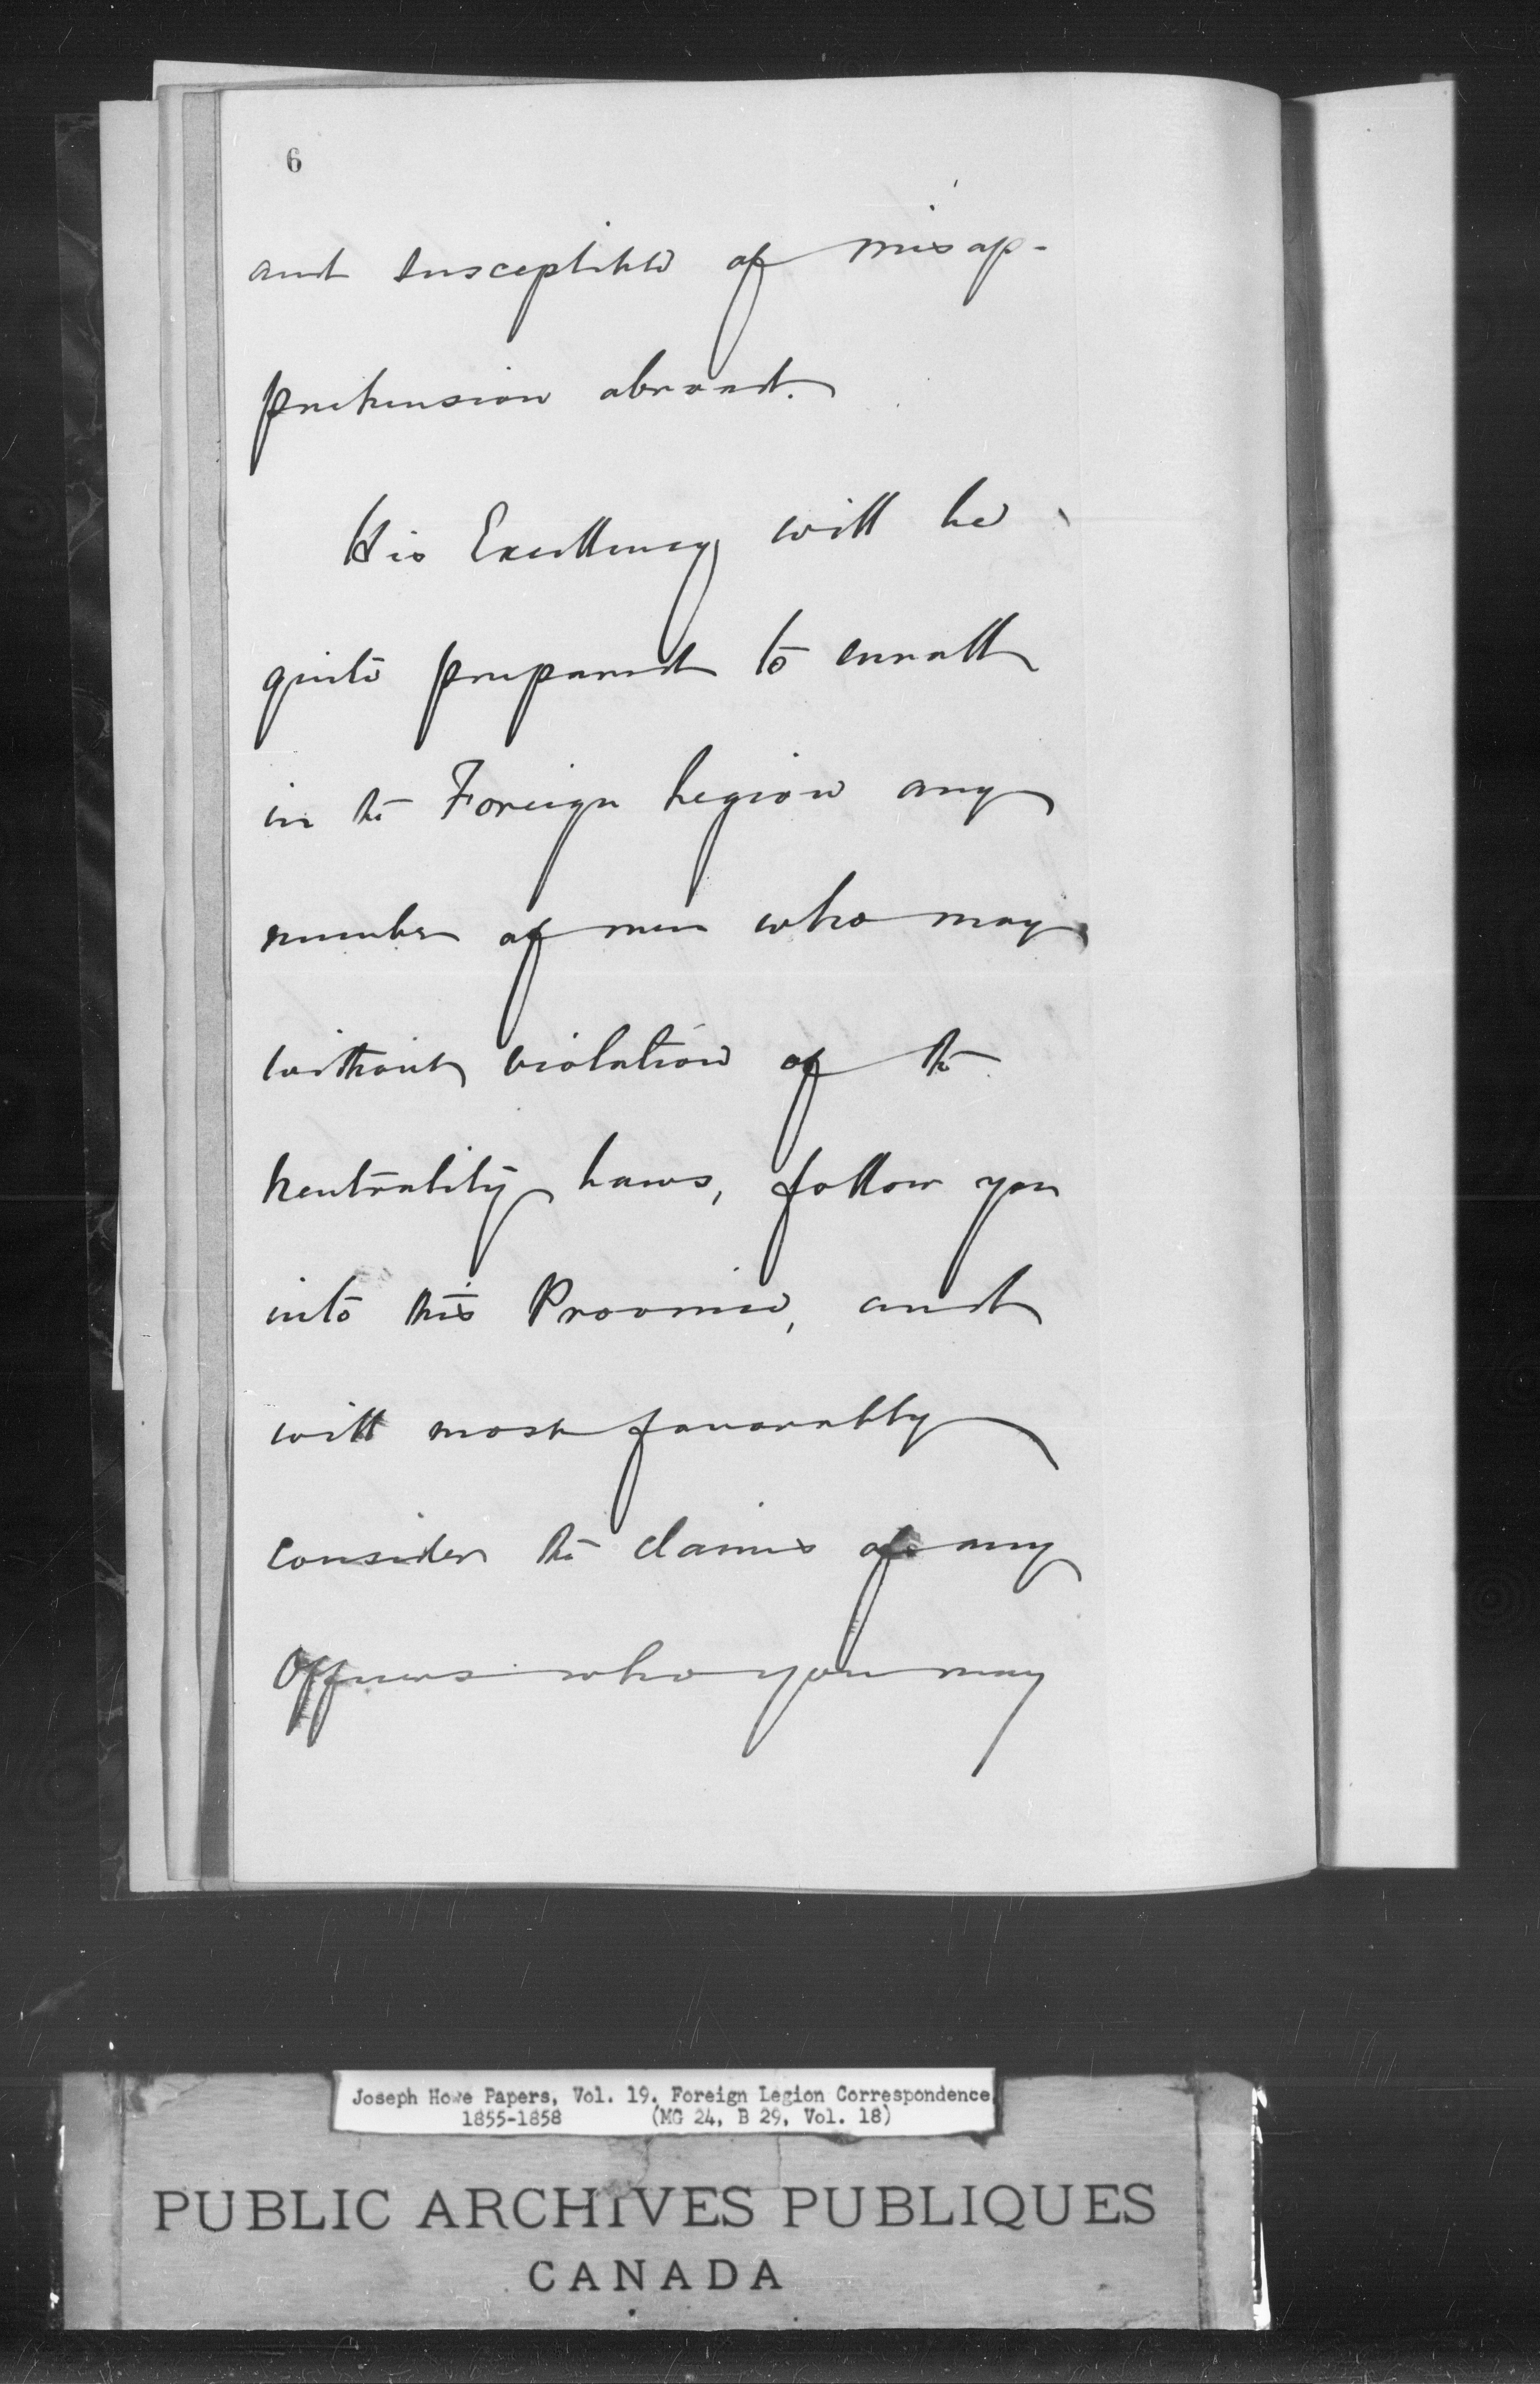 6
and susceptible of misap-
prehension abroad.
His Excellency will be
quite prepared to enroll
in the Foreign Legion any
number of men who may
without violation of the
Neutrality Laws, follow you
into this Province, and
will most favorably
consider the claims of any
Officers who you may
Joseph Howe Papers, Vol. 19. Foreign Legion Correspondence
1855-1858 (MG 24, B 29, Vol. 18)
PUBLIC ARCHIVES PUBLIQUES
CANADA